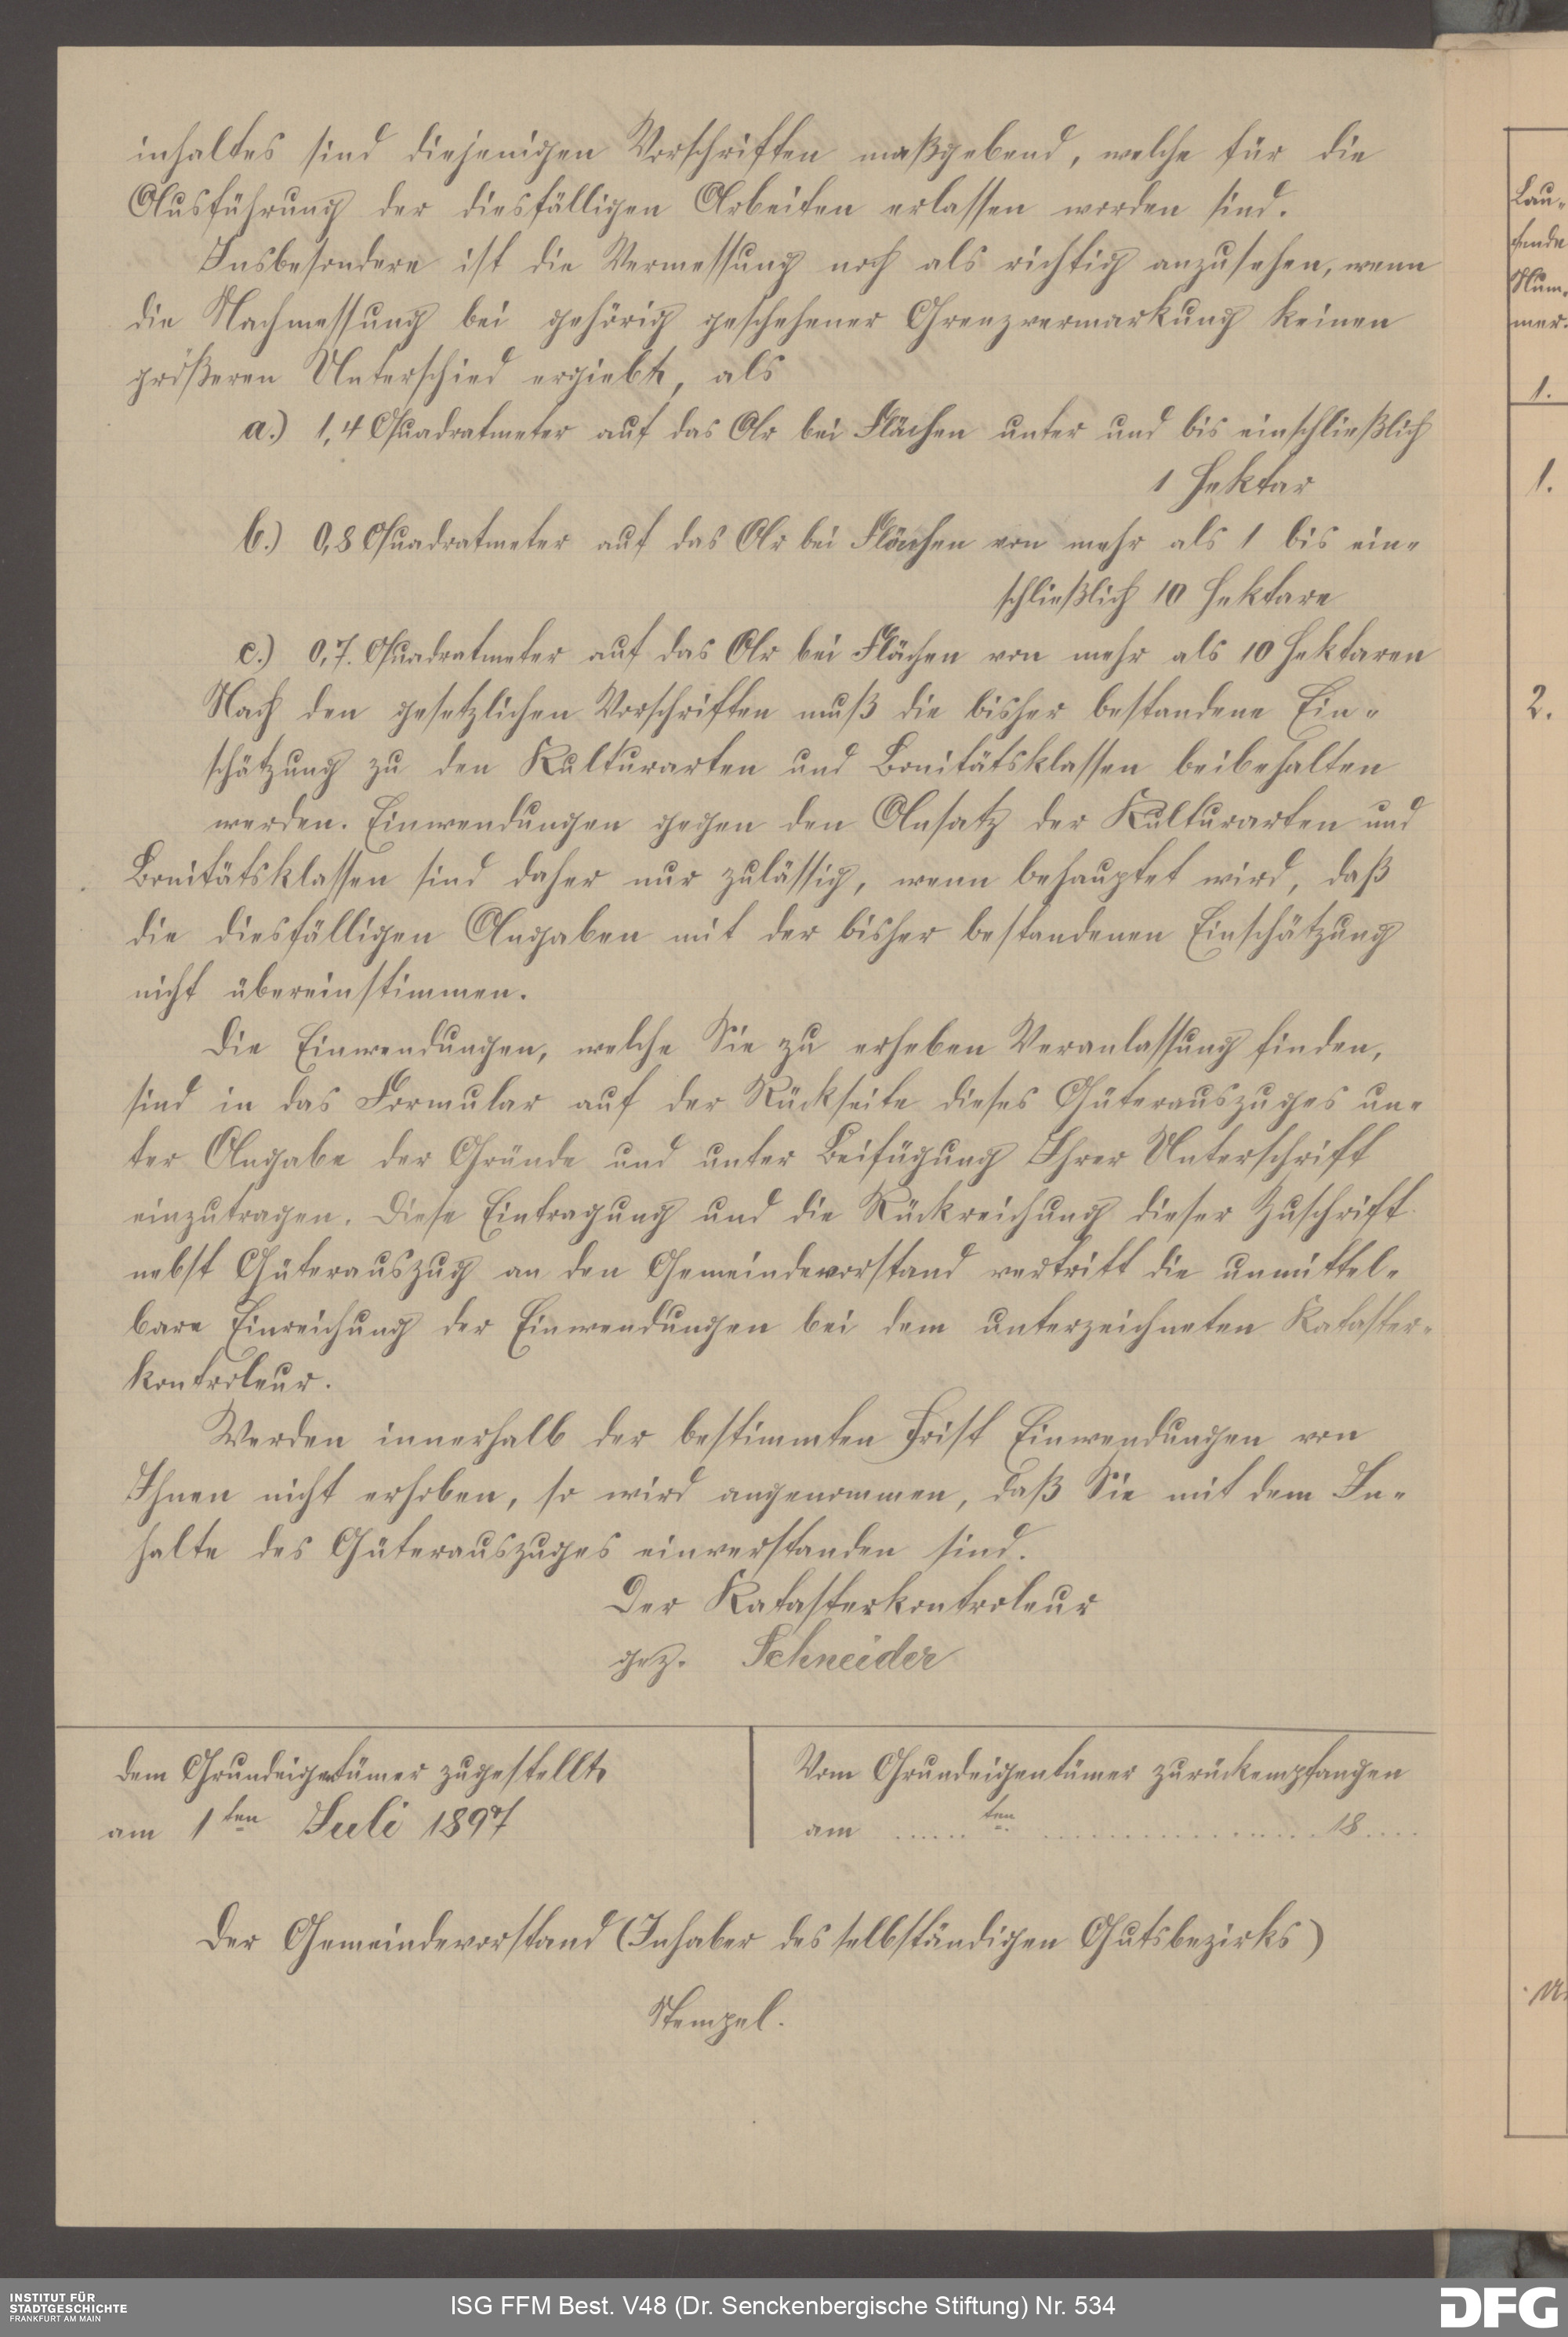 inhaltes sind diejenigen Vorschriften maßgebend, welche für die
Ausführung der diesfälligen Arbeiten erlassen worden sind.
Insbesondere ist die Vermessung noch als richtig anzusehen, wenn
die Nachmessung bei gehörig geschehener Grenzvermarkung keinen
größeren Unterschied ergiebt, als
a.) 1,4 Quadratmeter auf das Ar bei Flächen unter und bis einschließlich
1 Hektar
b.) 0,8 Quadratmeter auf das Ar bei Flächen von mehr als 1 bis ein-
schließlich 10 Hektare
c.) 0,7. Quadratmeter auf das Ar bei Flächen von mehr als 10 Hektaren
Nach den gesetzlichen Vorschriften muß die bisher bestandene Ein-
schätzung zu den Kulturarten und Bonitätsklassen beibehalten
werden. Einwendungen gegen den Ansatz der Kulturarten und
Bonitätsklassen sind daher nur zulässig, wenn behauptet wird, daß
die diesfälligen Angaben mit der bisher bestandenen Einschätzung
nicht übereinstimmen.
Die Einwendungen, welche Sie zu erheben Veranlassung finden,
sind in das Formular auf der Rückseite dieses Güterauszuges un-
ter Angabe der Gründe und unter Beifügung Ihrer Unterschrift
einzutragen. Diese Eintragung und die Rückreichung dieser Zuschrift
nebst Güterauszug an den Gemeindevorstand vertritt die unmittel-
bare Einreichung der Einwendungen bei dem unterzeichneten Kataster-
kontroleur.
Werden innerhalb der bestimmten Frist Einwendungen von
Ihnen nicht erhoben, so wird angenommen, daß Sie mit dem In-
halte des Güterauszuges einverstanden sind.
Der Katasterkontroleur
gez. Schneider
Dem Grundeigentümer zugestellt,
am 1ten Juli 1897
Vom Grundeigentümer zurückempfangen
am ...... ten ................ 18 ....
Der Gemeindevorstand (Inhaber des selbständigen Gutsbezirks)
Stempel.
Lau-
fende
Num-
mer.
1.
1.
2.
INSTITUT FÜR
STADTGESCHICHTE
FRANKFURT AM MAIN
ISG FFM Best. V48 (Dr. Senckenbergische Stiftung) Nr. 534
DFG